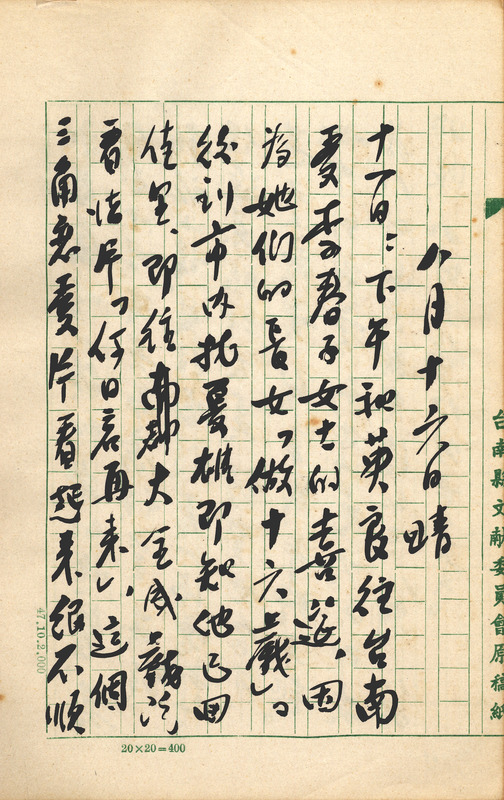 台南縣文獻委員會原稿紙
八月十六日 晴
十一日:下午和英良往台南
受李春子女士的喜筵、因
為她們的長女「做十六歲」。
後到市內找憂雄即知他已回
佳里、即往南都大全成戲院
看法片「何日君再來」、這個
三角戀愛片看起來很不順
20×20=400
47.10.2,000